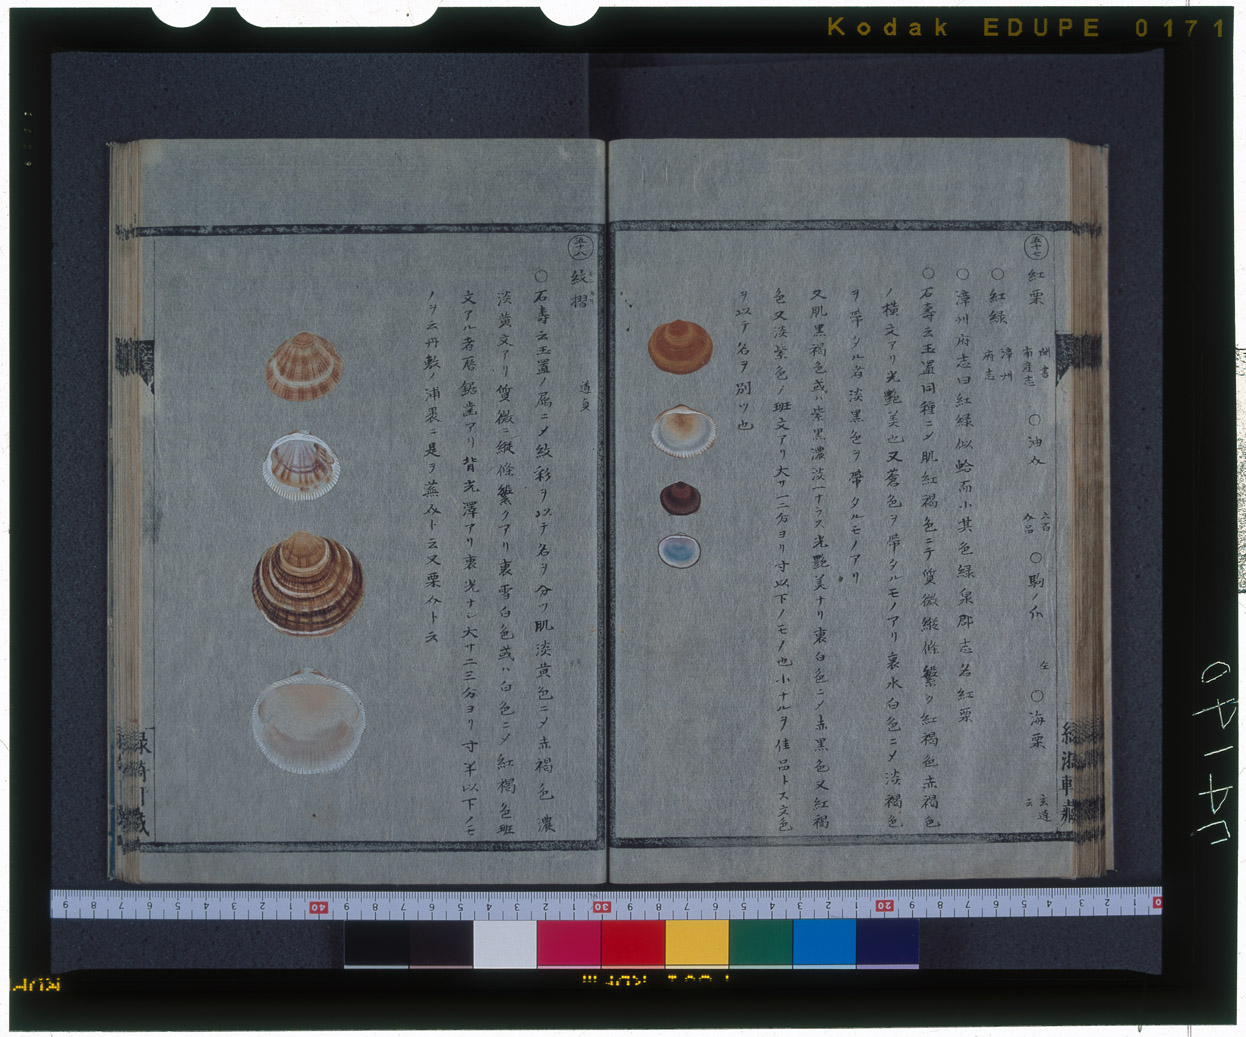 Kodak EDUPE 0171
五十七
紅栗 閩書南産志 ○油介 六百介品 ○駒ノ爪 仝 ○海栗 玄達云
○紅緑 漳州府志
○漳州府志曰紅緑似蛤而小其色緑泉郡志名紅栗
○石壽云玉置同種ニメ肌紅褐色ニテ質微縦條繁ク紅褐色赤褐色
ノ横文アリ光艶美也又蒼色ヲ帶タルモノアリ裏水白色ニメ淡褐色
ヲ帶タル者淡黒色ヲ帶タルモノアリ
又肌黒褐色或ハ紫黒濃淡一ナラス光艶美ナリ裏白色ニメ赤黒色又紅褐
色又淡紫色ノ斑文アリ大サ一二分ヨリ寸以下ノモノ也小ナルヲ佳品トス文色
ヲ以テ名ヲ別ツ也
五十八
紋摺 道貞
○石壽云玉置ノ属ニメ紋彩ヲ以テ名ヲ分ツ肌淡黄色ニメ赤褐色濃
淡黄文アリ質微ニ縦條繁クアリ裏雪白色或ハ白色ニメ紅褐色斑
文アル者唇ニ鋸歯アリ背光澤アリ裏光ナシ大サ二三分ヨリ寸半以下ノモ
ノヲ云丹敷ノ浦裏ニ是ヲ蕪介ト云又栗介ト云